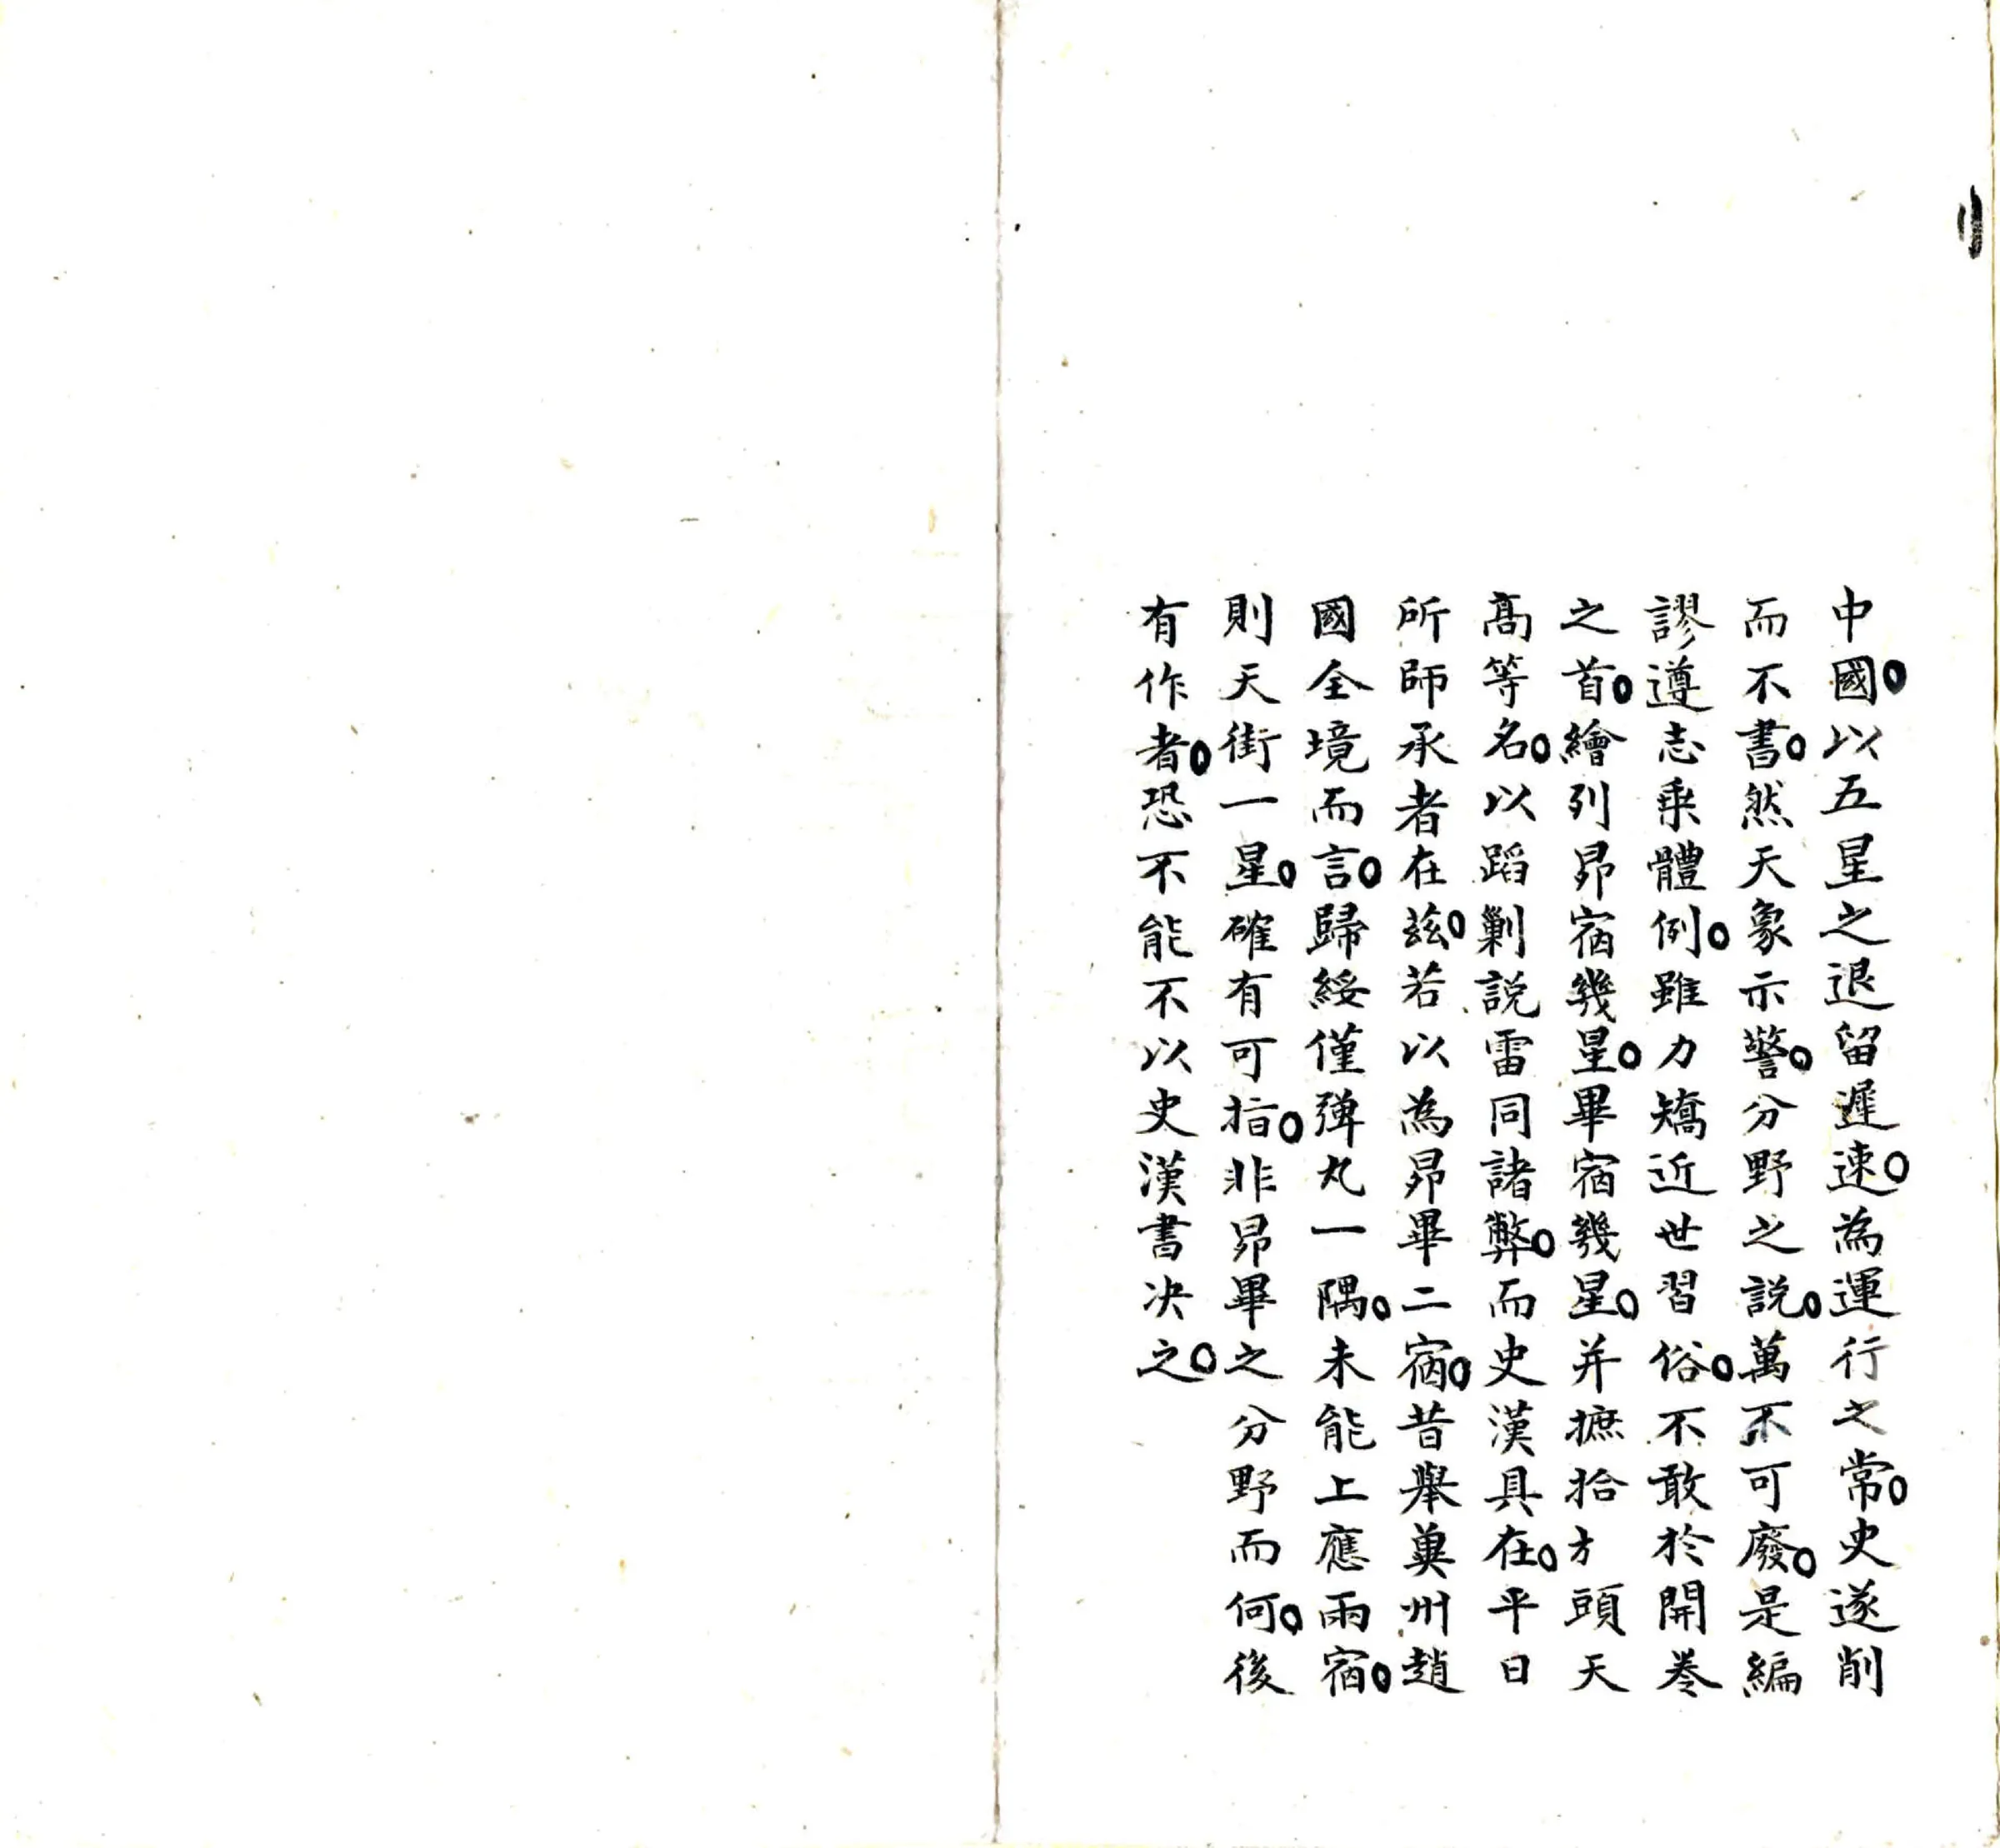 中國。以五星之退留遲速。為運行之常。史遂削
而不書。然天象示警。分野之説。萬不可廢。是編
謬遵志乗體例。雖力矯近世習俗。不敢於開卷
之首。繪列昴宿幾星。畢宿幾星。并摭拾方頭天
髙等名。以蹈剿説雷同諸弊。而史漢具在。平日
所師承者在兹。若以為昴畢二宿。昔舉冀州趙
國全境而言。歸綏僅弹丸一隅。未能上應兩宿。
則天街一星。確有可指。非昴畢之分野而何。後
有作者。恐不能不以史漢書决之。